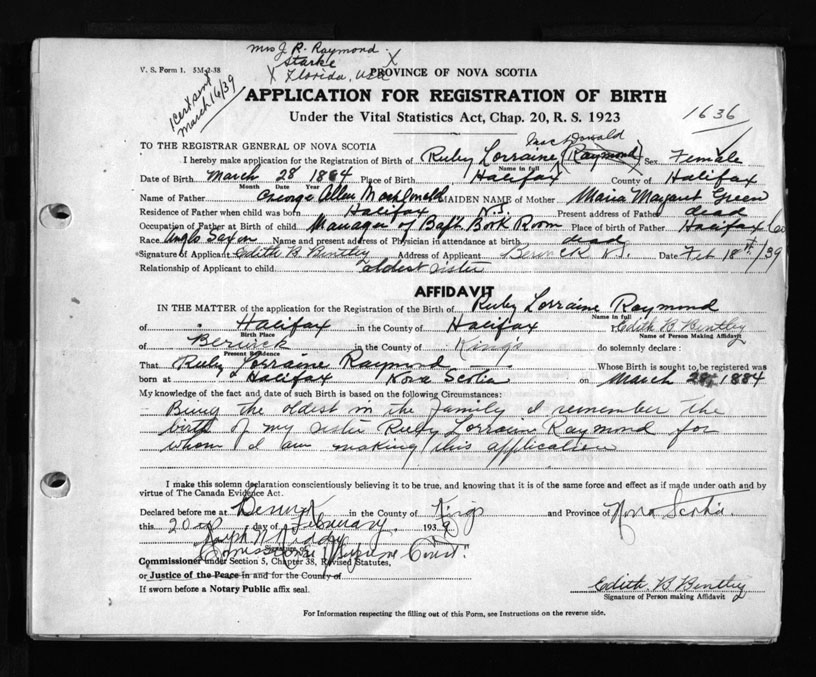 Mrs J. R. Raymond
Starke
X Florida, USA X
V. S. Form 1. 5M-2-38
PROVINCE OF NOVA SCOTIA
1 cert sent
March 16/39
APPLICATION FOR REGISTRATION OF BIRTH
1636
Under the Vital Statistics Act, Chap. 20, R. S. 1923
TO THE REGISTRAR GENERAL OF NOVA SCOTIA
MacDonald
I hereby make application for the Registration of Birth of Ruby Lorraine (Raymond) Sex Female
Name in full
Date of Birth March 28 1884 Place of Birth Halifax County of Halifax
Month Date Year
Name of Father George Allen MacDonald MAIDEN NAME of Mother Maria Margaret Green
Residence of Father when child was born Halifax N.S. Present address of Father dead
Occupation of Father at Birth of child Manager of Bapt Book Room Place of birth of Father Halifax Co
Race Anglo Saxon Name and present address of Physician in attendance at birth dead
*Signature of Applicant Edith B Bentley Address of Applicant Berwick N.S. Date Feb 18th/39
Relationship of Applicant to child oldest sister
AFFIDAVIT
IN THE MATTER of the application for the Registration of the Birth of Ruby Lorraine Raymond
Name in full
of Halifax in the County of Halifax I Edith B Bentley
Birth Place Name of Person Making Affidavit
of Berwick in the County of Kings do solemnly declare :
Present Residence
That Ruby Lorraine Raymond Whose Birth is sought to be registered was
born at Halifax Nova Scotia on March 28, 1884
My knowledge of the fact and date of such Birth is based on the following Circumstances:
Being the oldest in the family I remember the
birth of my sister Ruby Lorraine Raymond for
whom I am making this application
I make this solemn declaration conscientiously believing it to be true, and knowing that it is of the same force and effect as if made under oath and by
virtue of The Canada Evidence Act.
Declared before me at Berwick in the County of Kings and Province of Nova Scotia.
this 20th day of February. 1939
Ralph N
Signature of
Commissioner Supreme Court
Commissioner under Section 5, Chapter 38, Revised Statutes,
or Justice of the Peace in and for the County of
If sworn before a Notary Public affix seal.
Edith B Bentley
Signature of Person making Affidavit
For Information respecting the filling out of this Form, see Instructions on the reverse side.